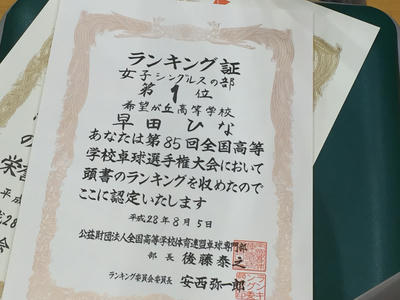 ランキング証
女子シングルスの部
第1位
希望が丘高等学校
早田 ひな
あなたは第85回全国高等
学校卓球選手権大会において
頭書のランキングを収めたので
ここに認定いたします
平成28年8月5日
公益財団法人全国高等学校体育連盟卓球専門部
部長 後藤泰之
ランキング委員会委員長 安西弥一郎
の
栄
平成
28
会